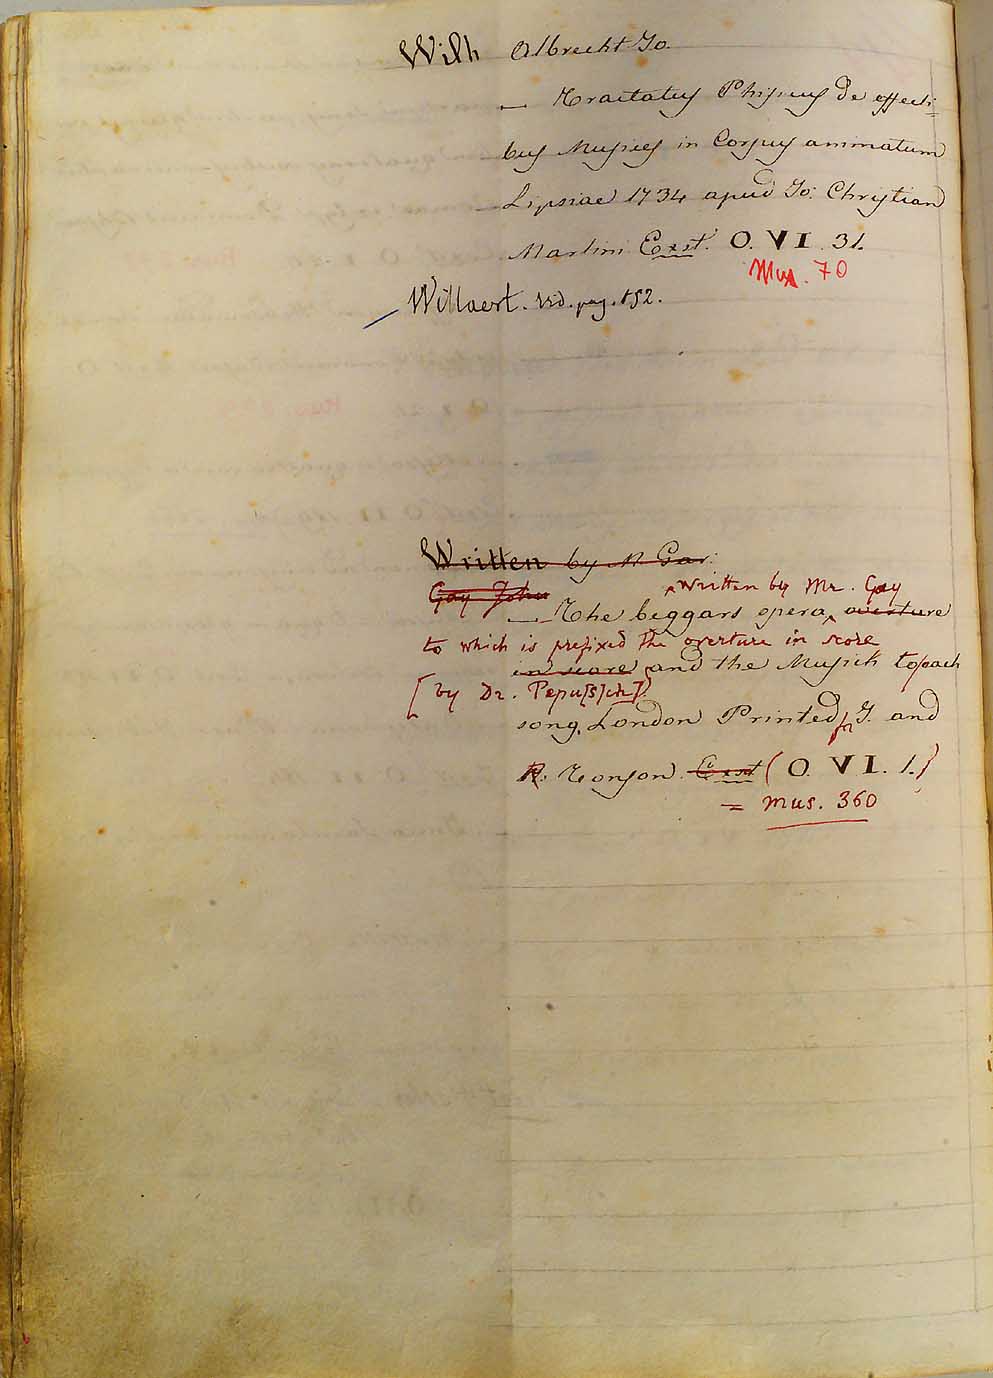 Wilh Albrecht Jo.
— Tractatus Phisicus de effecti=
bus Musices in Corpus animatum
Lipsiae 1734 apud Jo: Christian
Martini Exst. O. VI. 31.
Mus. 70
Willaert. vid. pag. 152.
Written by M Gar.
Gay John written by Mr. Gay
— The beggars opera, overture
to which is prefixed the overture in score
in scare and the Musick to each
[by Dr. Pepu[s]ch]
song, London Printed for J. and
R. Tonson. Exst (O. VI. 1.)
= Mus. 360